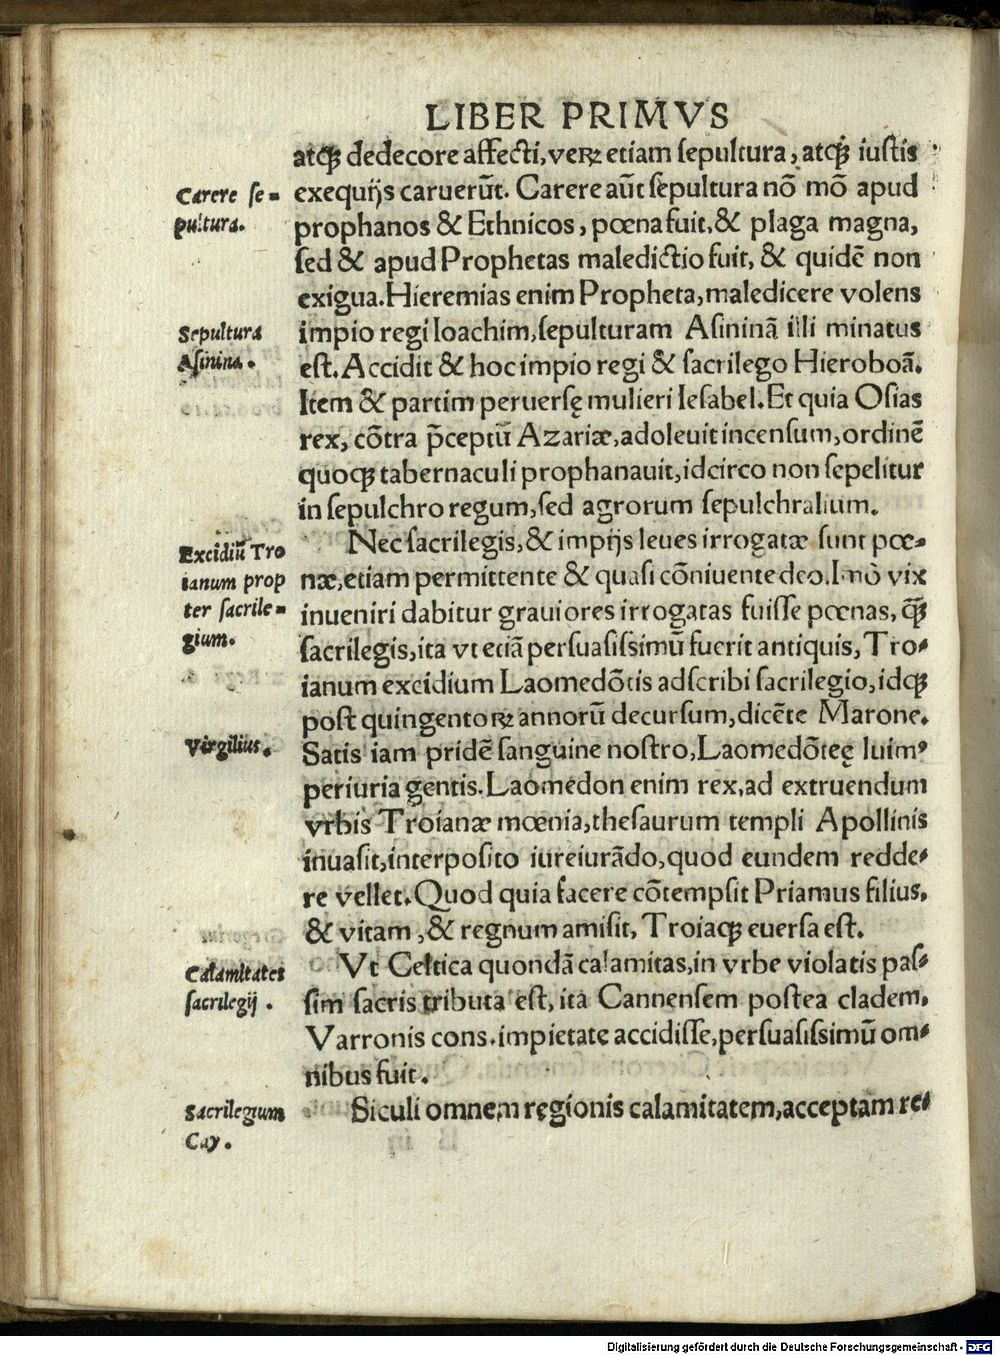 LIBER PRIMVS
atqȝ dedecore affecti, veꝝ etiam sepultura, atqȝ iustis
exequijs caruerūt. Carere aūt sepultura nō mō apud
prophanos & Ethnicos, pœna fuit, & plaga magna,
sed & apud Prophetas maledictio fuit, & quidē non
exigua. Hieremias enim Propheta, maledicere volens
impio regi Ioachim, sepulturam Asininā illi minatus
est. Accidit & hoc impio regi & sacrilego Hieroboā.
Item & partim peruersę mulieri Iesabel. Et quia Osias
rex, cōtra p̄ceptū Azariæ, adoleuit incensum, ordinē
quoqȝ tabernaculi prophanauit, idcirco non sepelitur
in sepulchro regum, sed agrorum sepulchralium.
Nec sacrilegis, & impijs leues irrogatæ sunt pœ-
næ, etiam permittente & quasi cōniuente deo. Imò vix
inueniri dabitur grauiores irrogatas fuisse pœnas, q̄ȝ
sacrilegis, ita vt etiā persuasissimū fuerit antiquis, Tro-
ianum excidium Laomedōtis adscribi sacrilegio, idqȝ
post quingentoꝝ annorū decursum, dicēte Marone.
Satis iam pridē sanguine nostro, Laomedōteę luimꝰ
periuria gentis. Laomedon enim rex, ad extruendum
vrbis Troianæ mœnia, thesaurum templi Apollinis
inuasit, interposito iureiurādo, quod eundem redde-
re vellet. Quod quia facere cōtempsit Priamus filius,
& vitam, & regnum amisit, Troiaqȝ euersa est.
Vt Celtica quondā calamitas, in vrbe violatis pas-
sim sacris tributa est, ita Cannensem postea cladem,
Varronis cons. impietate accidisse, persuasissimū om-
nibus fuit.
Siculi omnem ręgionis calamitatem, acceptam re-
Carere se-
pultura.
Sepultura
Asinina.
Excidiū Tro
ianum prop
ter sacrile-
gium.
Virgilius.
Calamitates
sacrilegij.
Sacrilegium
Cay.
Digitalisierung gefördert durch die Deutsche Forschungsgemeinschaft - DFG